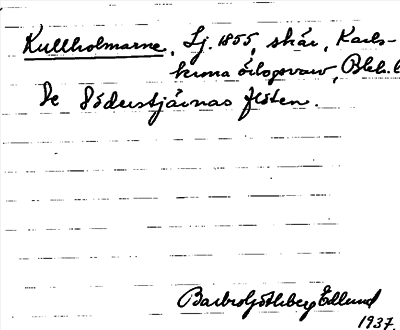 Kullholmarne, Sj. 1855, skär, Karls-
krona örlogsvarv, Blek. l
Se Söderstjärnas flöten.
Barbro Göthberg Edlund
1937.